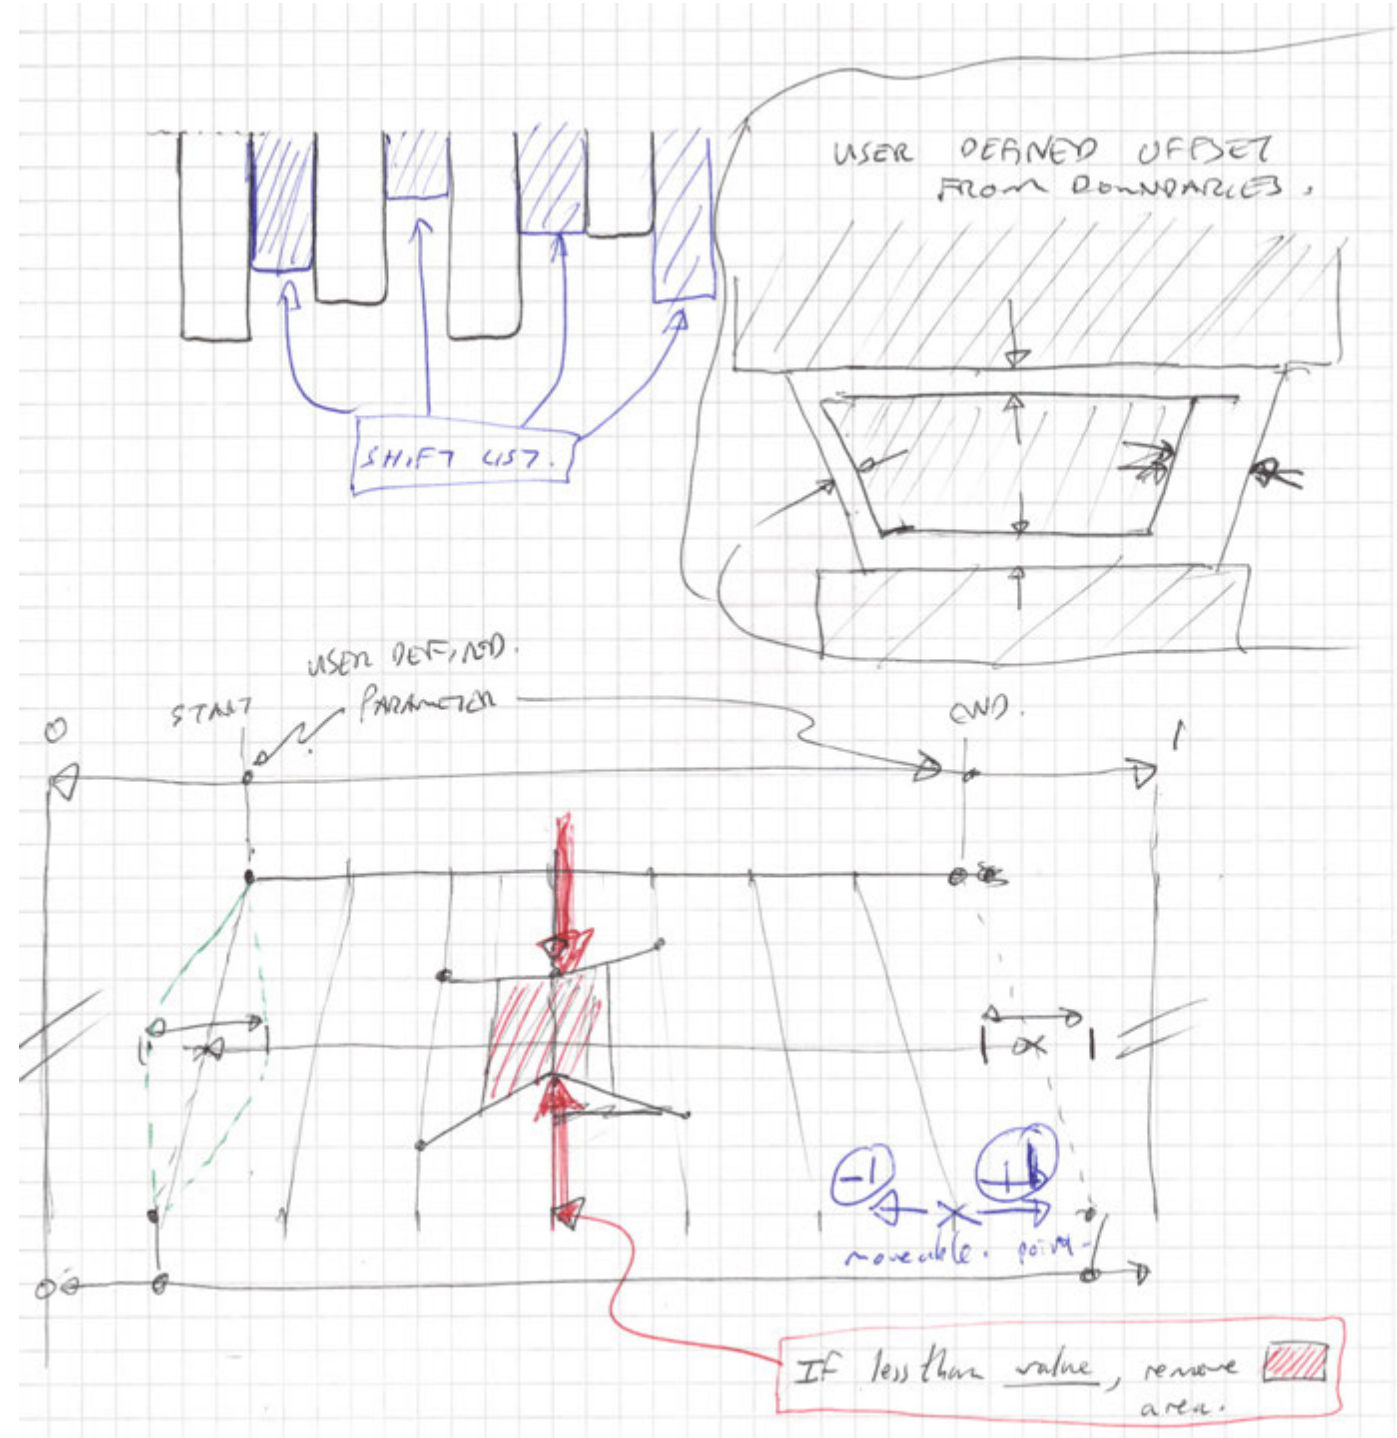 USER DEFINED OFFSET
FROM BOUNDARIES.
SHIFT LIST.
USER DEFINED.
PARAMETER
START
END.
0
1
-1
+1
moveable. point
0
If less than value, remove
area.